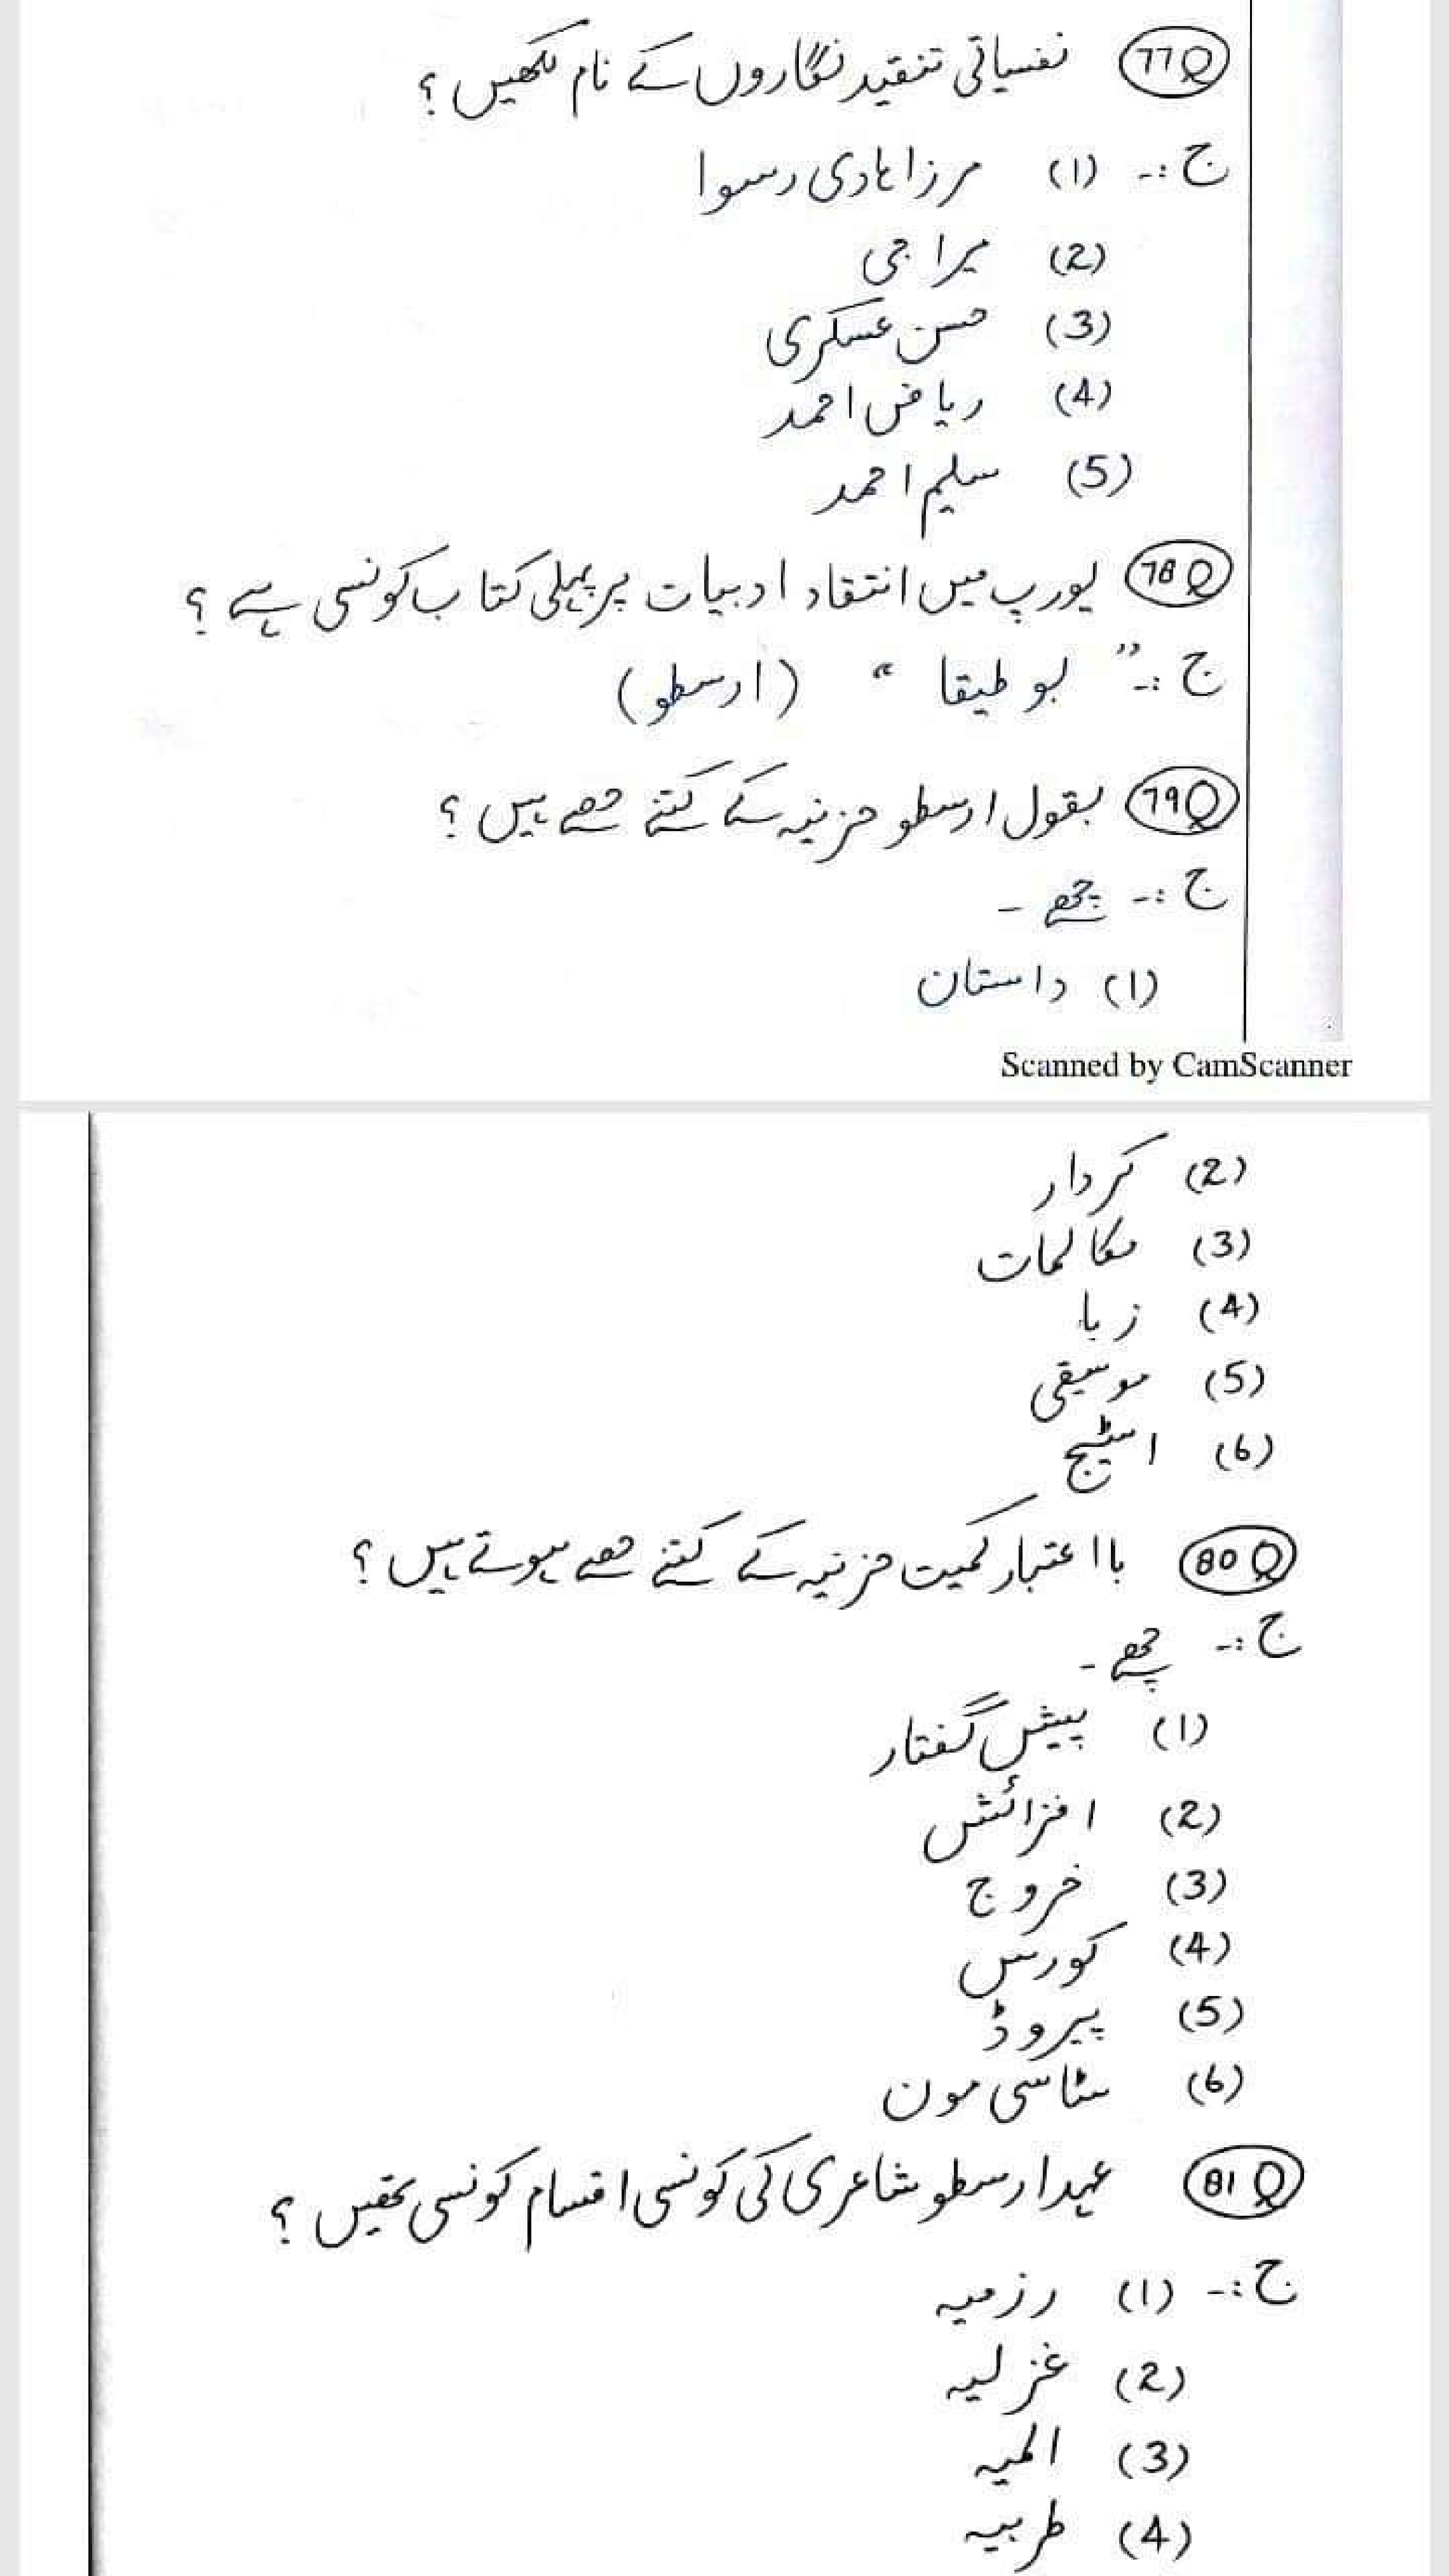 77Q نفسیاتی تنقید نگاروں کے نام لکھیں؟
ج :- (1) مرزا ہادی رسوا
(2) میرا جی
(3) حسن عسکری
(4) ریاض احمد
(5) سلیم احمد
78Q یورپ میں انتقاد ادبیات پر پہلی کتاب کونسی ہے؟
ج :- ” بوطیقا “ (ارسطو)
79Q بقول ارسطو حزنیہ کے کتنے حصے ہیں؟
ج :- چھے -
(1) داستان
Scanned by CamScanner
(2) کردار
(3) مکالمات
(4) زبا
(5) موسیقی
(6) اسٹیج
80Q باا عتبار کمیت حزنیہ کے کتنے حصے ہوتے ہیں؟
ج :- چھے -
(1) پیش گفتار
(2) افزائش
(3) خروج
(4) کورس
(5) پیروڈ
(6) سٹاسی مون
81Q عہد ارسطو شاعری کی کونسی اقسام کونسی تھیں؟
ج :- (1) رزمیہ
(2) غزلیہ
(3) المیہ
(4) طربیہ